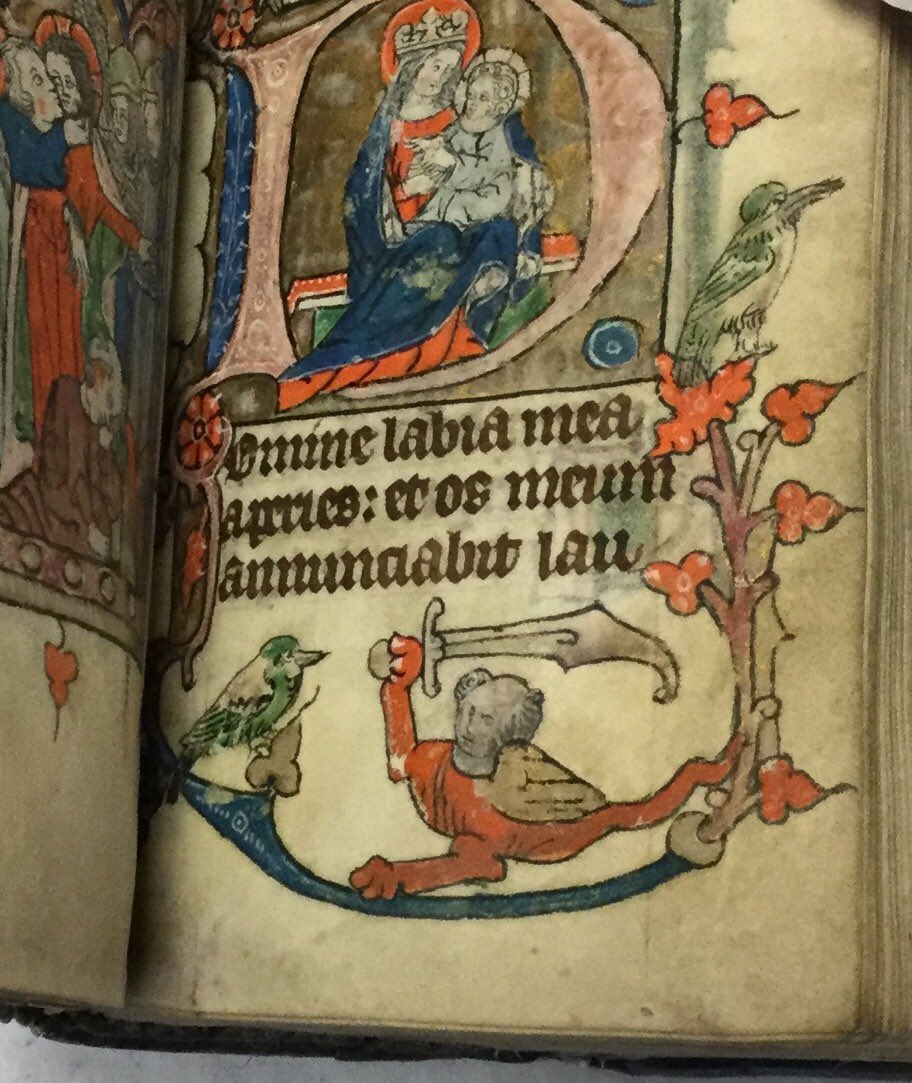 Domine labia mea
aperies: et os meum
annunciabit lau